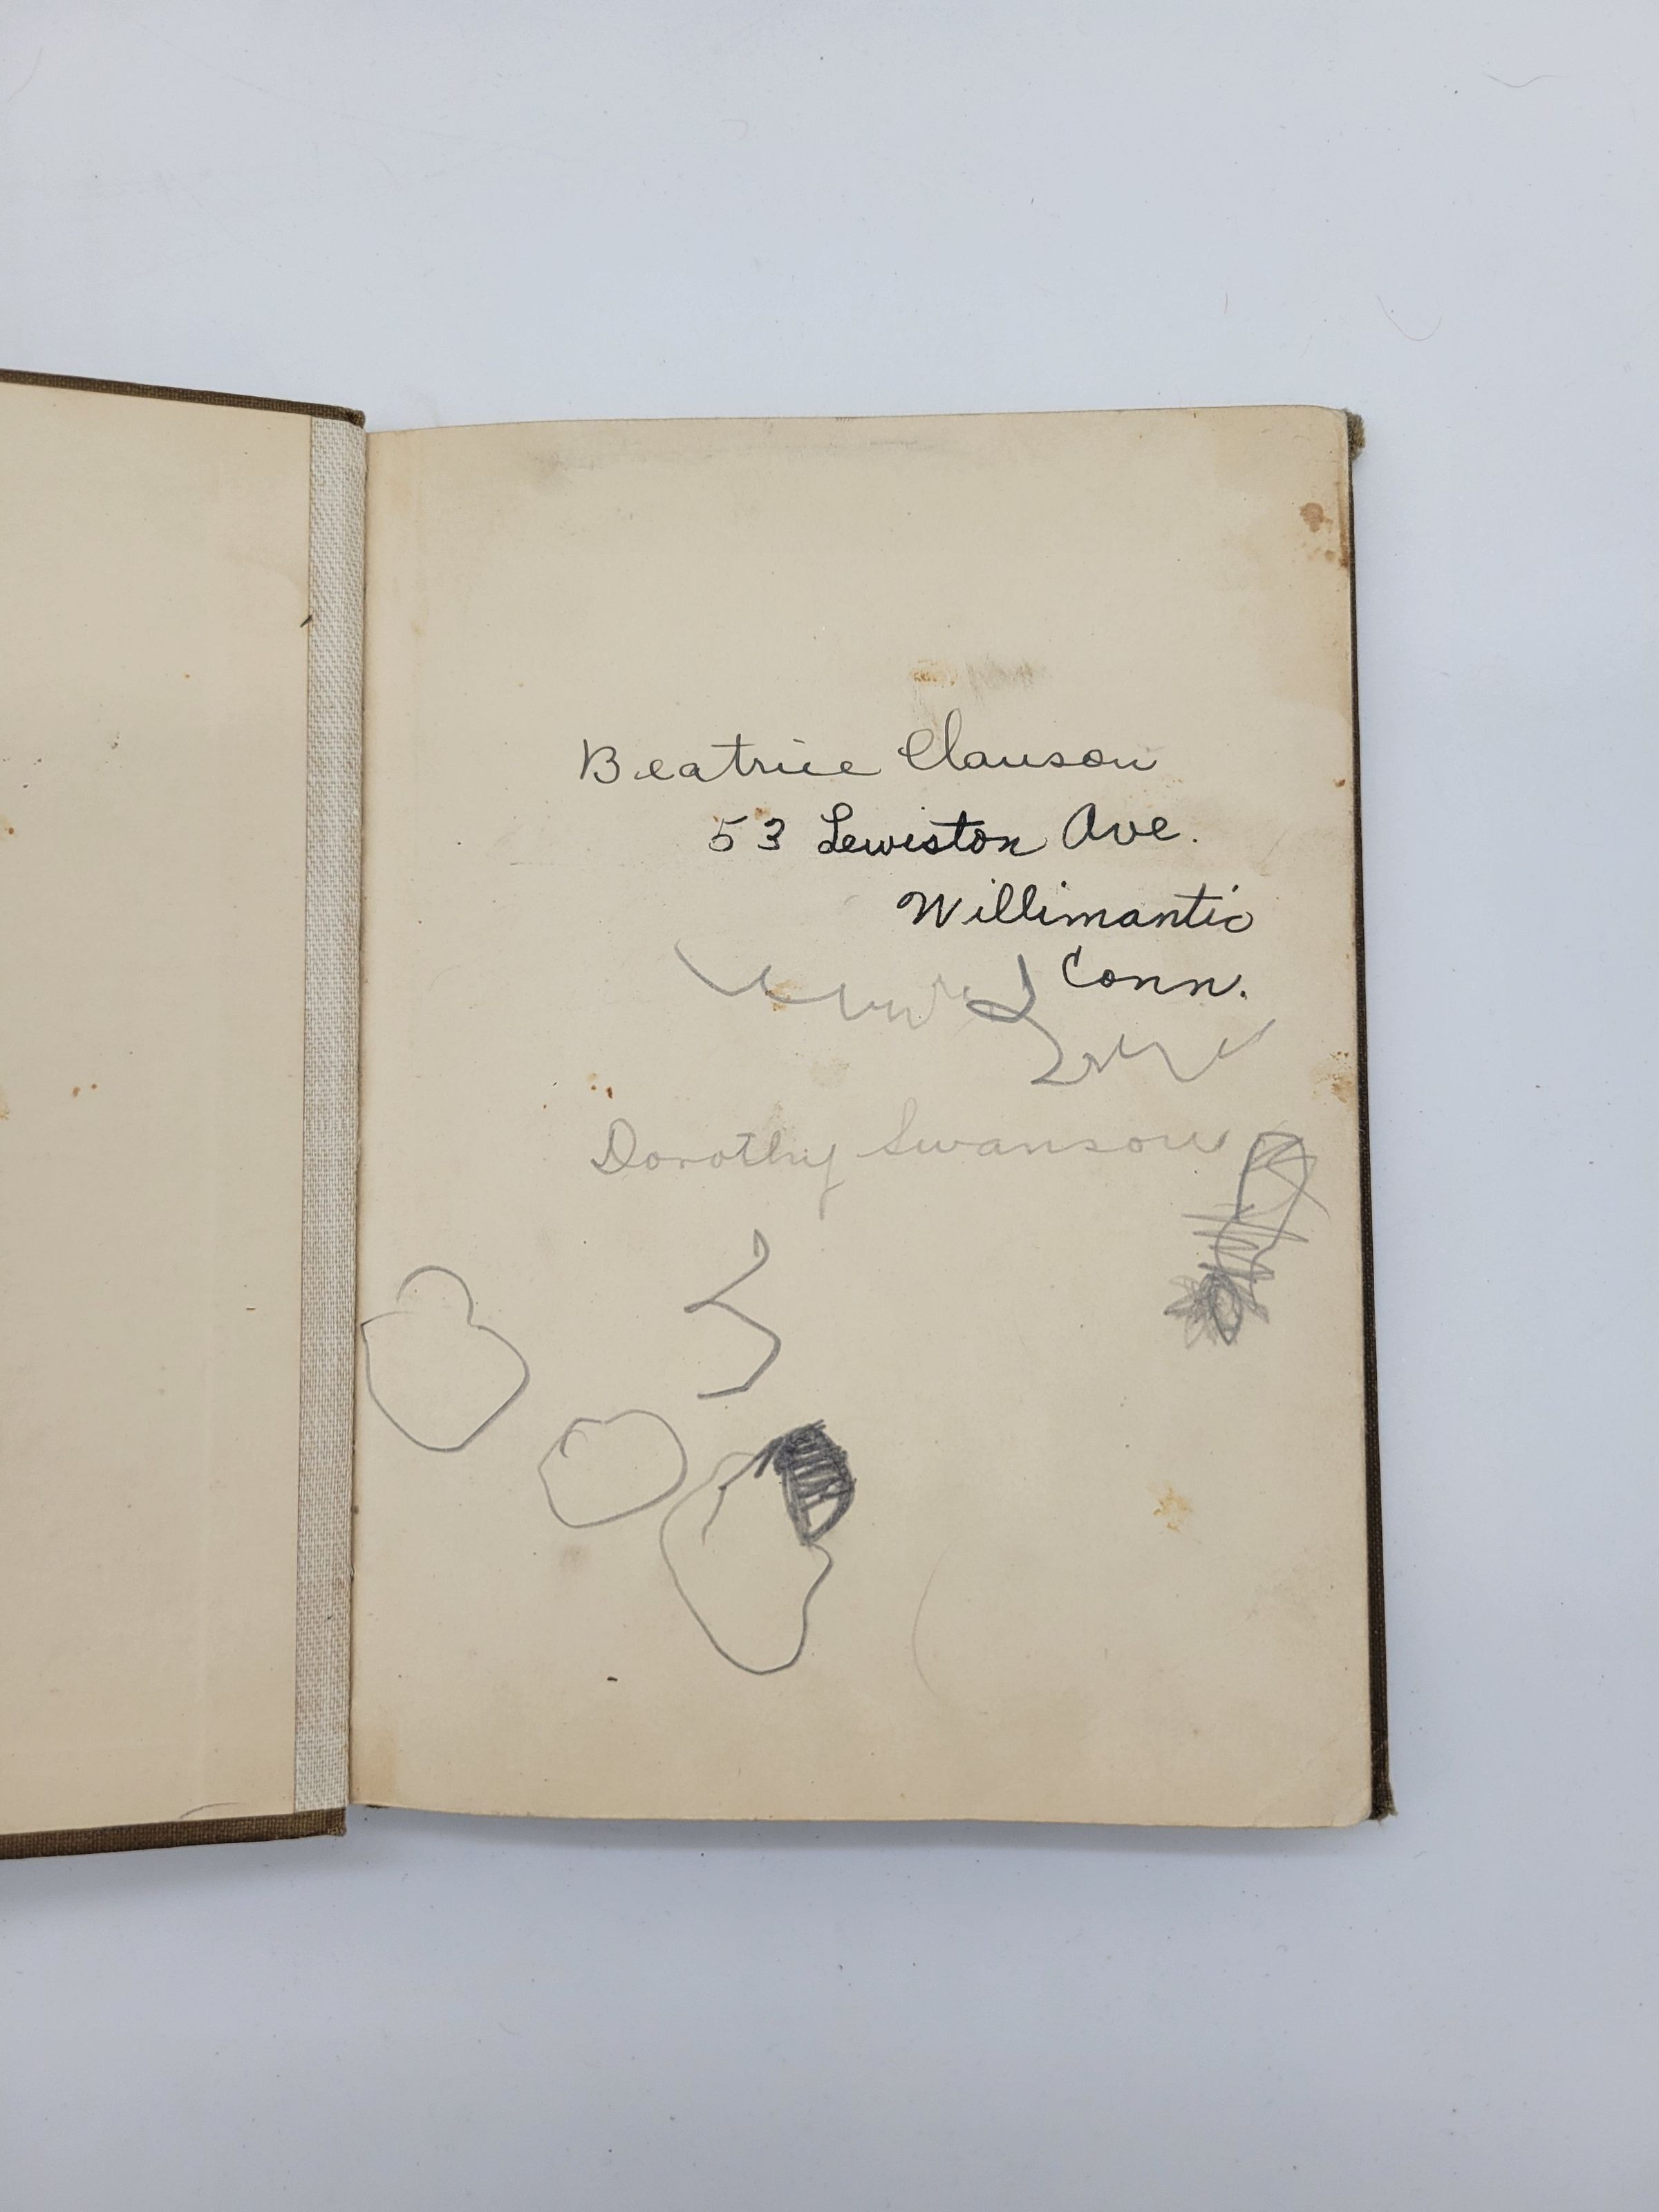 Beatrice Clauson
53 Lewiston Ave.
Willimantic
Conn.
Dorothy Swanson